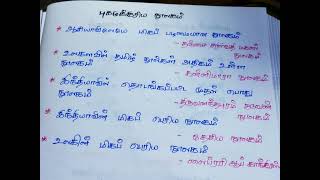 புகழ்க்குரிய நூலகம்
* ஆசியாவிலேயே மிகப் பழமையான நூலகம்
- தஞ்சை சரசுவதி மகால் நூலகம்
* உலகளவில் தமிழ் நூல்கள் அதிகம் உள்ள நூலகம்
- கன்னிமாரா நூலகம்
* இந்தியாவில் தொடங்கப்பட்ட முதல் பொது நூலகம்
- திருவனந்தபுரம் நடுவண் நூலகம்
* இந்தியாவின் மிகப் பெரிய நூலகம்
- தேசிய நூலகம்
* உலகின் மிகப் பெரிய நூலகம்
- லைப்ரரி ஆப் காங்கிரஸ்